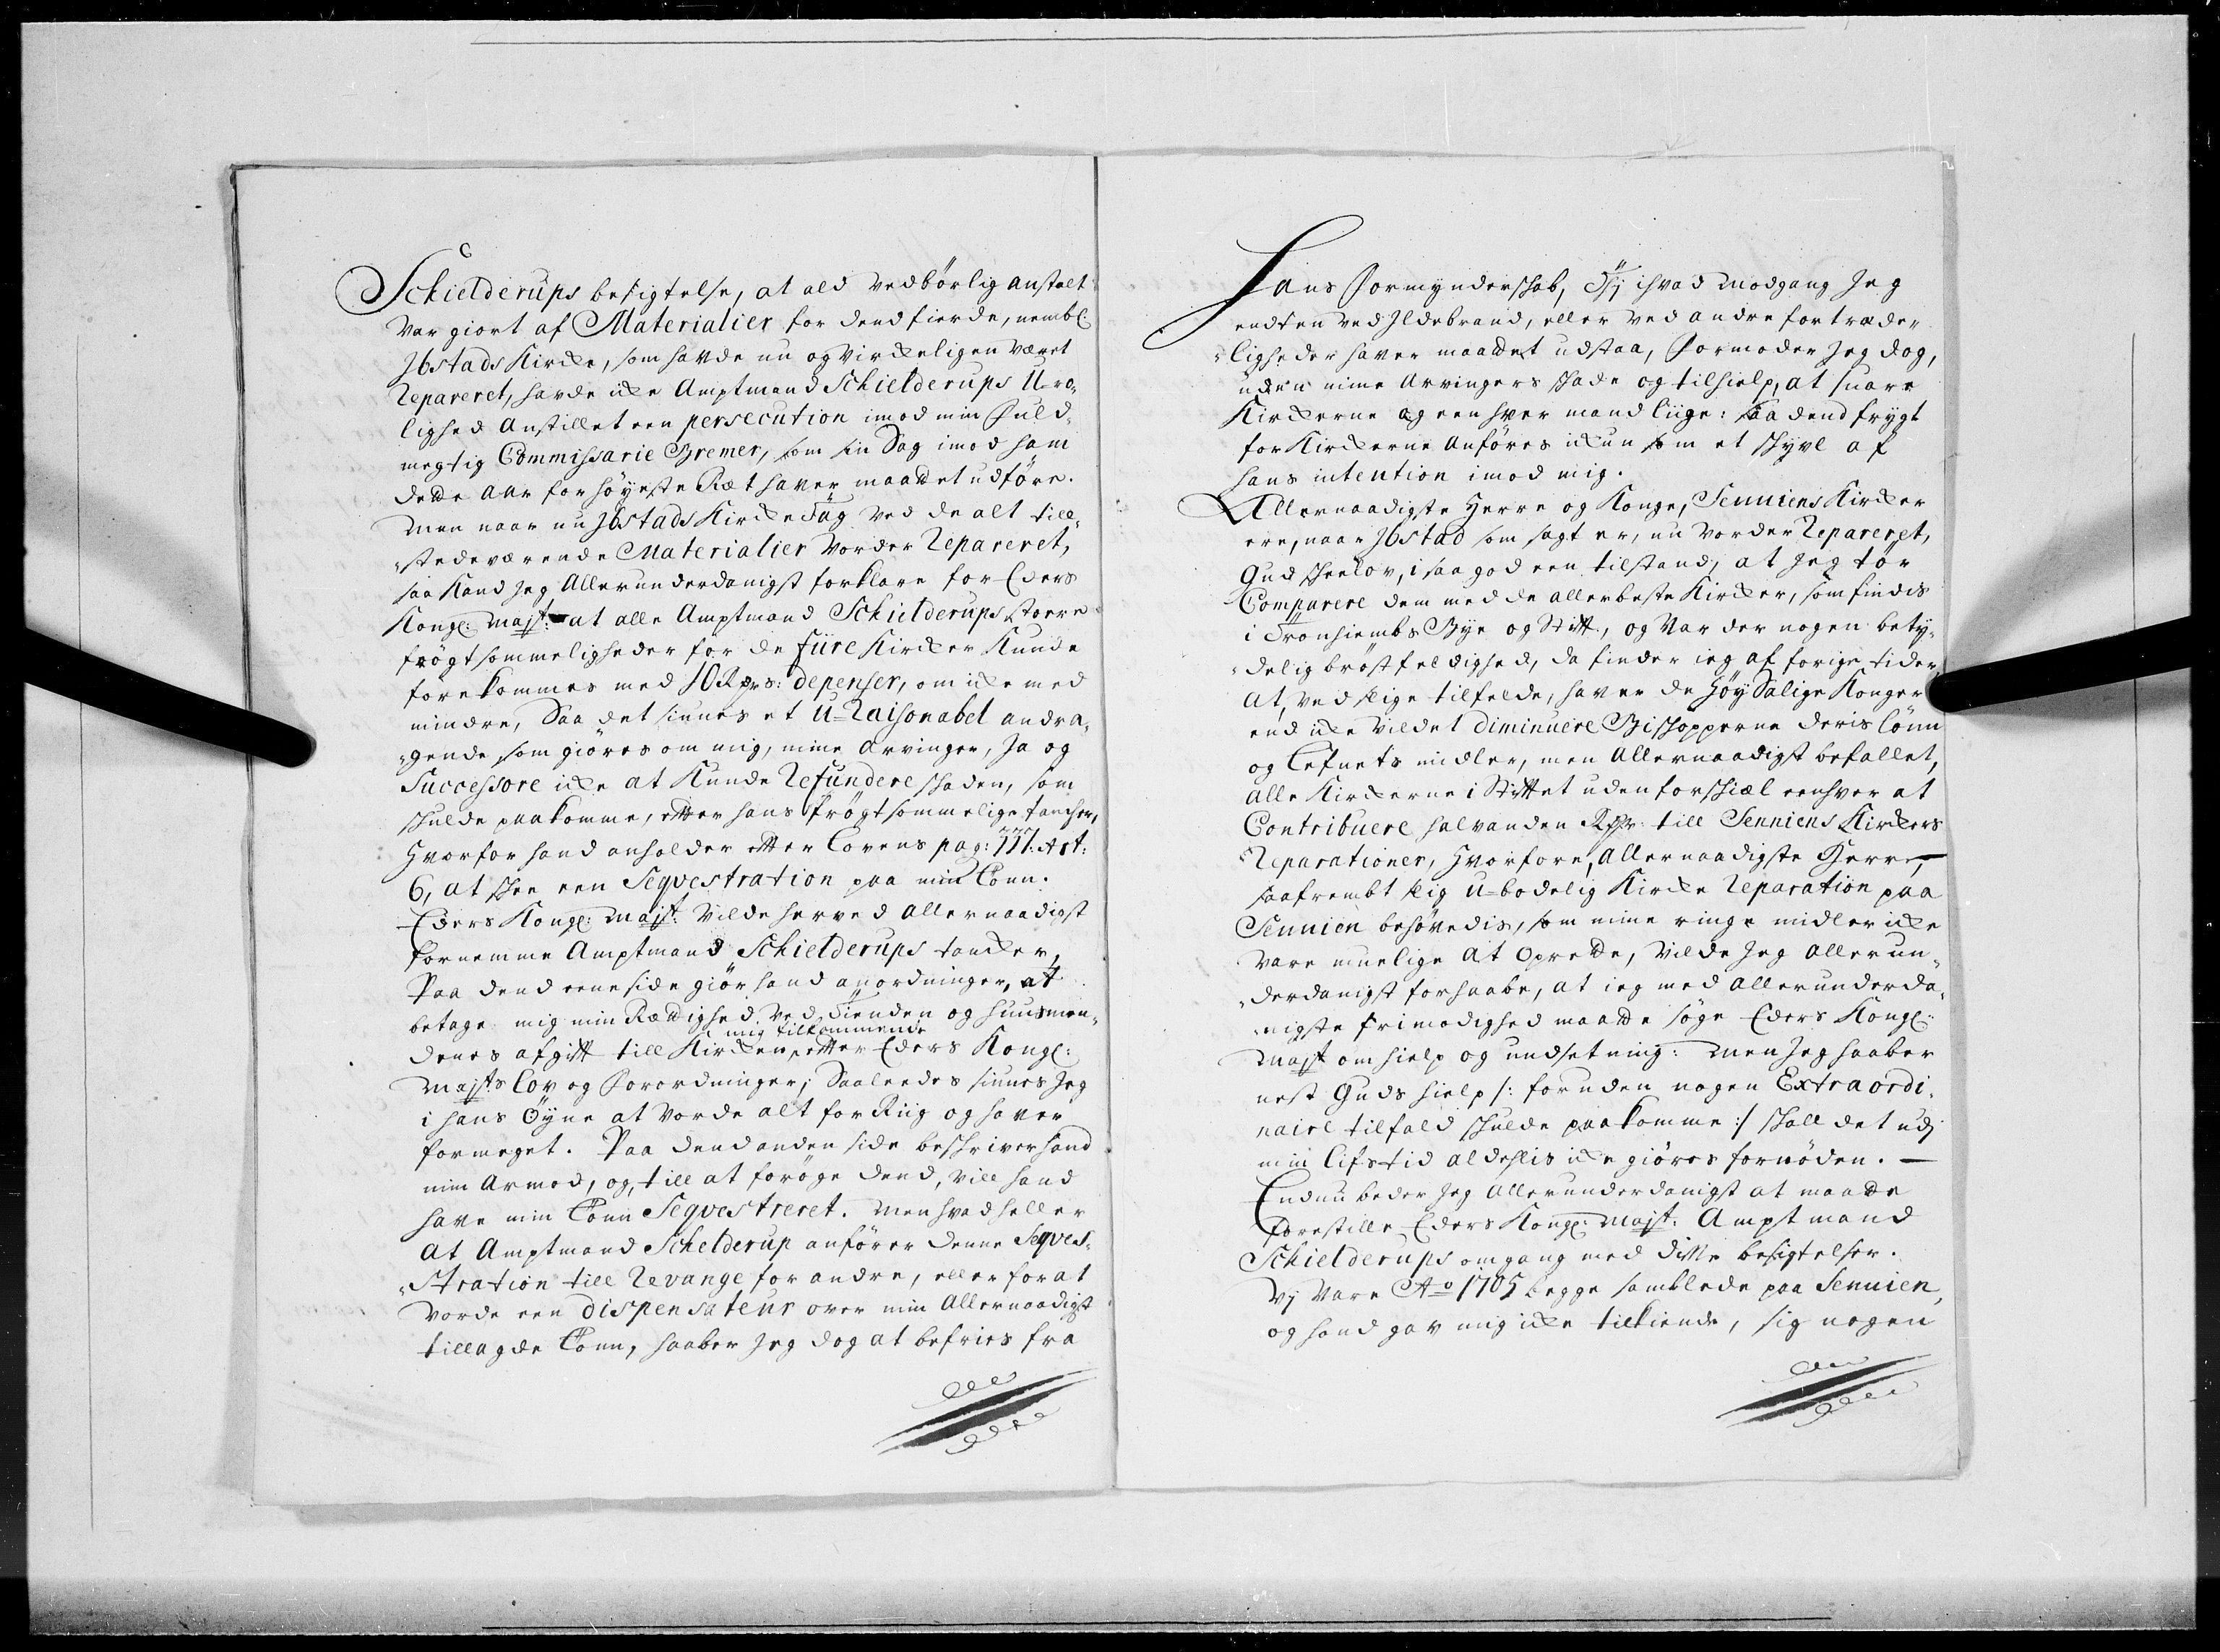 Schielderups besigtelse, at ald vedbörlig anstalt
var giort af Materialier for dend fierde, nembl:
Ibstads Kircke, som havde nu og virckeligen været
Repareret, havde icke Amptmand Schielderups U-ro-
lighed anstillet een persecution imod min Fuld-
megtig Commissarie Bremer, som sin Sag imod ham
dette aar for höyeste Ræt haver maattet udföre.
Men naar nu Ibstads Kircke Tag ved de alt till-
stedeværende Materialier vorder Repareret,
saa kand jeg Allerunderdanigst forklare for Eders
Kongl: Majst: at alle Amptmand Schielderups store
frögtsommeligheder for de fiire Kircker kunde
forekommes med 10 Rdrs: depenser, om icke med
mindre, Saa det siunes et U-Raisonabel andra-
gende som giöres om mig, mine arvinger, Ja og
Successore icke at kunde Refundere skaden, som
skulde paakomme, etter hans frögtsommelige tancher,
Hvorfor hand anholder etter Lovens pag: 771. Art:
6, at skee een Seqvestration paa min Lönn.
Eders Kongl: Majst: vilde herved allernaadigst
fornemme Amptmand Schielderups tancker,
Paa dend eene side giör hand anordninger, at
betage mig min Rættighed ved Tienden og huusmen-
mig tilkommende
denes afgift till Kircken, etter Eders Kongl:
Majsts Lov og Forordninger; Saaleedes siunes Jeg
i hans Öyne at vorde alt for Riig og haver
formeget. Paa dend anden side beskriver hand
min Armod, og, till at foröge dend, vill hand
have min Lönn Seqvestreret. Men hvad heller
at Amptmand Schelderup anförer denne Seqves-
stration till Revange for andre, eller for at
vorde een dispensateur over min Allernaadigst
tillagde Lönn, haaber Jeg dog at befries fra
Hans Formynderskab, Thj ihvad modgang Jeg
endten ved Ildebrand, eller ved andre fortræde-
ligheder haver maattet udstaa, Formoder Jeg dog,
uden mine Arvingers skade og tilhielp, at svare
Kirckerne og een hver mand liige: saa dend frygt
for Kirckerne anföres ickun som et skyvl af
hans intention imod mig.
Allernaadigste Herre og Konge, Senniens Kircker
ere, naar Ibstad som sagt er, nu vorder Repareret,
Gud skee lov, i saa god een tilstand, at Jeg tör
Comparere dem med de allerbeste Kircker, som findis
i Tronhiembs Bye og Stift, og var der nogen bety-
delig bröstfeldighed, da finder ieg af forige tider,
at, ved slige tilfelde, haver de HöySalige Konger
end icke vildet diminuere Biskopperne deris Lönn
og Lefnets midler, men Allernaadigst befallet,
alle Kirckerne i Stiftet uden forskiæl eenhver at
Contribuere halvanden Rdr: till Senniens Kirckers
Reparationer, Hvorfore, Allernaadigste Herre,
saafrembt slig U-bodelig Kircke Reparation paa
Sennien behövedis, som mine ringe midler icke
vare muelige at oprette, vilde Jeg Allerun-
derdanigst forhaabe, at ieg med allerunderda-
nigste frimodighed maatte söge Eders Kongl:
Majst om hielp og undsetning: Men Jeg haaber
nest Guds hielp /: foruden nogen Extraordi-
naire tilfald skulde paakomme :/ skall det udj
min Lifs tid aldehlis icke giöres fornöden.
Endnu beder Jeg Allerunderdanigst at maatte
forestille Eders Kongl: Majst: Amptmand
Schielderups omgang med ditte besigtelser.
Vj vare Ao 1705 begge samblede paa Sennien,
og hand gav mig icke tilkiende, sig nogen